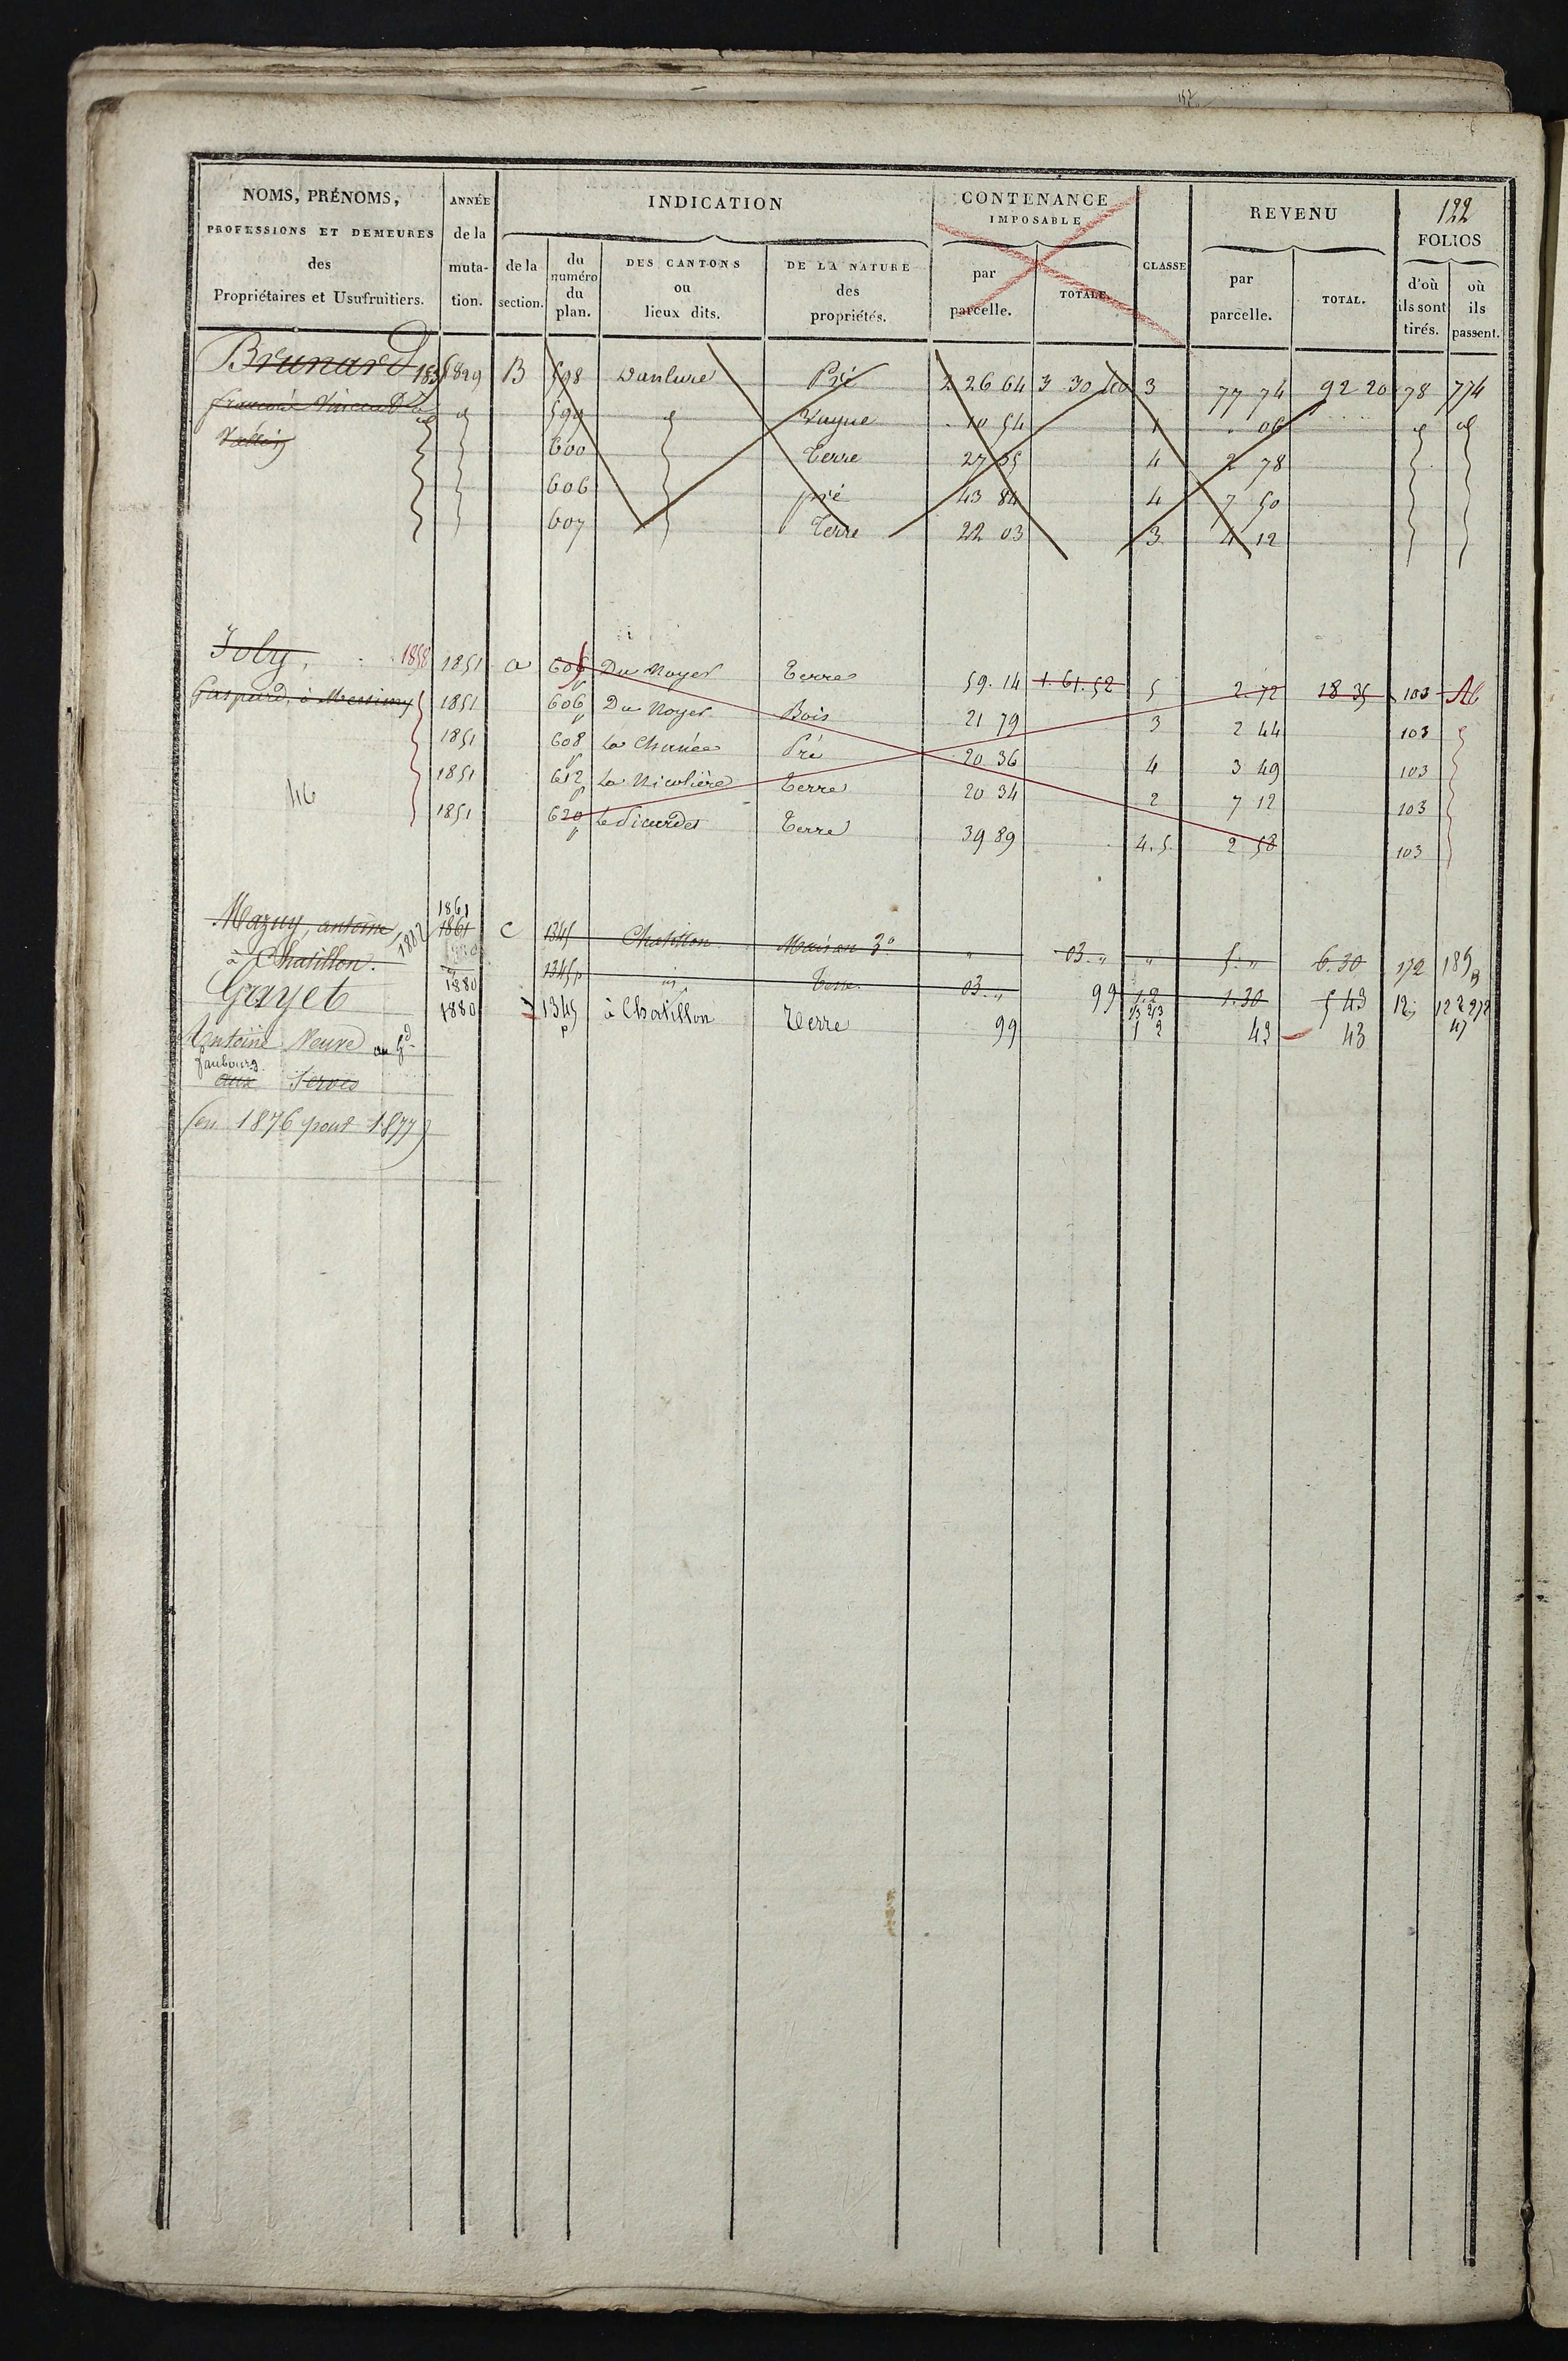 122
NOMS, PRÉNOMS, PROFESSIONS ET DEMEURES des Propriétaires et Usufruitiers.
ANNÉE de la muta- tion.
INDICATION
de la section.
du numéro du plan.
DES CANTONS ou lieux dits.
DE LA NATURE des propriétés.
CONTENANCE IMPOSABLE
par parcelle.
TOTALE.
CLASSE
REVENU
par parcelle.
TOTAL.
FOLIOS
d'où ils sont tirés.
où ils passent.
Brunard 1829 B 598 Pré 2 26 64 3 30 40 3 77 74 92 20 78 774
599 Vague 10 54 1 06
600 Terre 27 35 4 2 78
606 pré 43 84 4 7 50
607 Terre 22 03 3 4 12
Joly, 1858 1851 a 605 Du Noyer Terre 59. 14 1. 61. 52 5 2. 72 18 35 103
Gaspard, à Messimy 1851 606 p Du Noyer Bois 21 79 3 2 44 103
1851 608 p Pré 20 36 4 3 49 103
1851 612 p La Nicolière Terre 20 34 2 7 12 103
1851 620 p Terre 39 89 4. 5 2 58 103
1861
Mazuy, antoine 1882 1861 C 1345 Chatillon Maison 3e " 03. " " 5. " 6. 30 172 189
à Chatillon. 1880 1345 p id Terre 03. " 99 1. 2 1. 30 5 43
Gayet 1880 1345 p à Chatillon Terre 99 1 2 43 43
Antoine Neuve au Gd
faubourg
aux Serves
(en 1876 pour 1877)